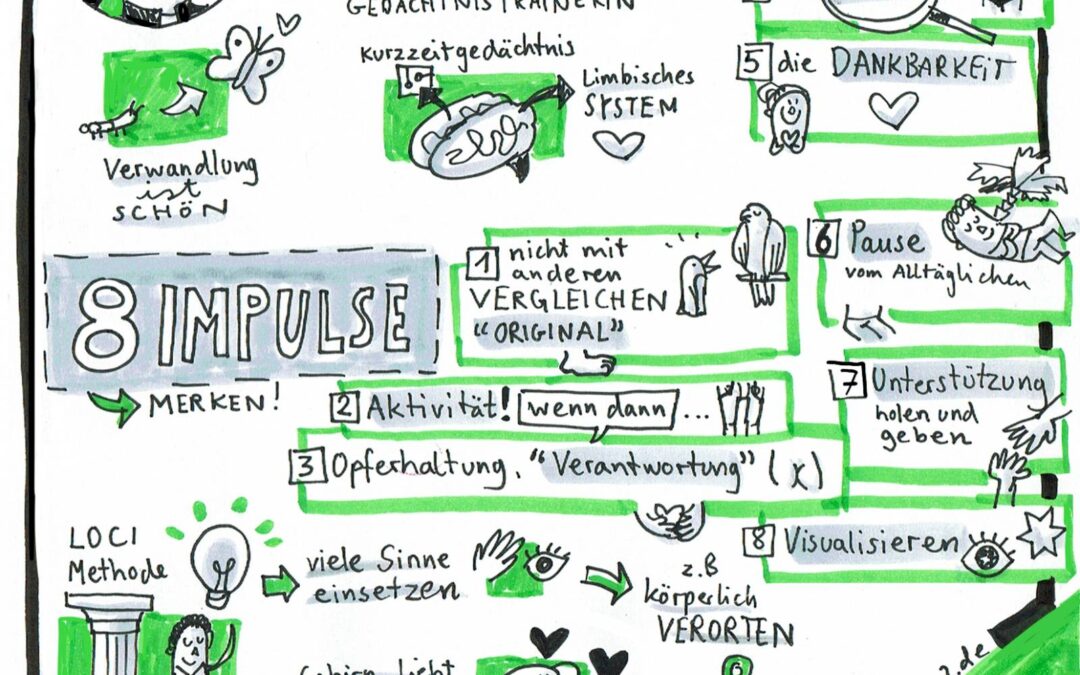 GEDÄCHTNISTRAINERIN
Kurzzeitgedächtnis
Limbisches
SYSTEM
Verwandlung
ist
SCHÖN
5 die DANKBARKEIT
8 IMPULSE
MERKEN!
1 nicht mit
anderen
VERGLEICHEN
"ORIGINAL"
2 Aktivität! wenn dann ...
3 Opferhaltung. "Verantwortung" (x)
6 Pause
vom Alltäglichen
7 Unterstützung
holen und
geben
8 Visualisieren
LOCI
Methode
viele Sinne
einsetzen
z.B
körperlich
VERORTEN
.de